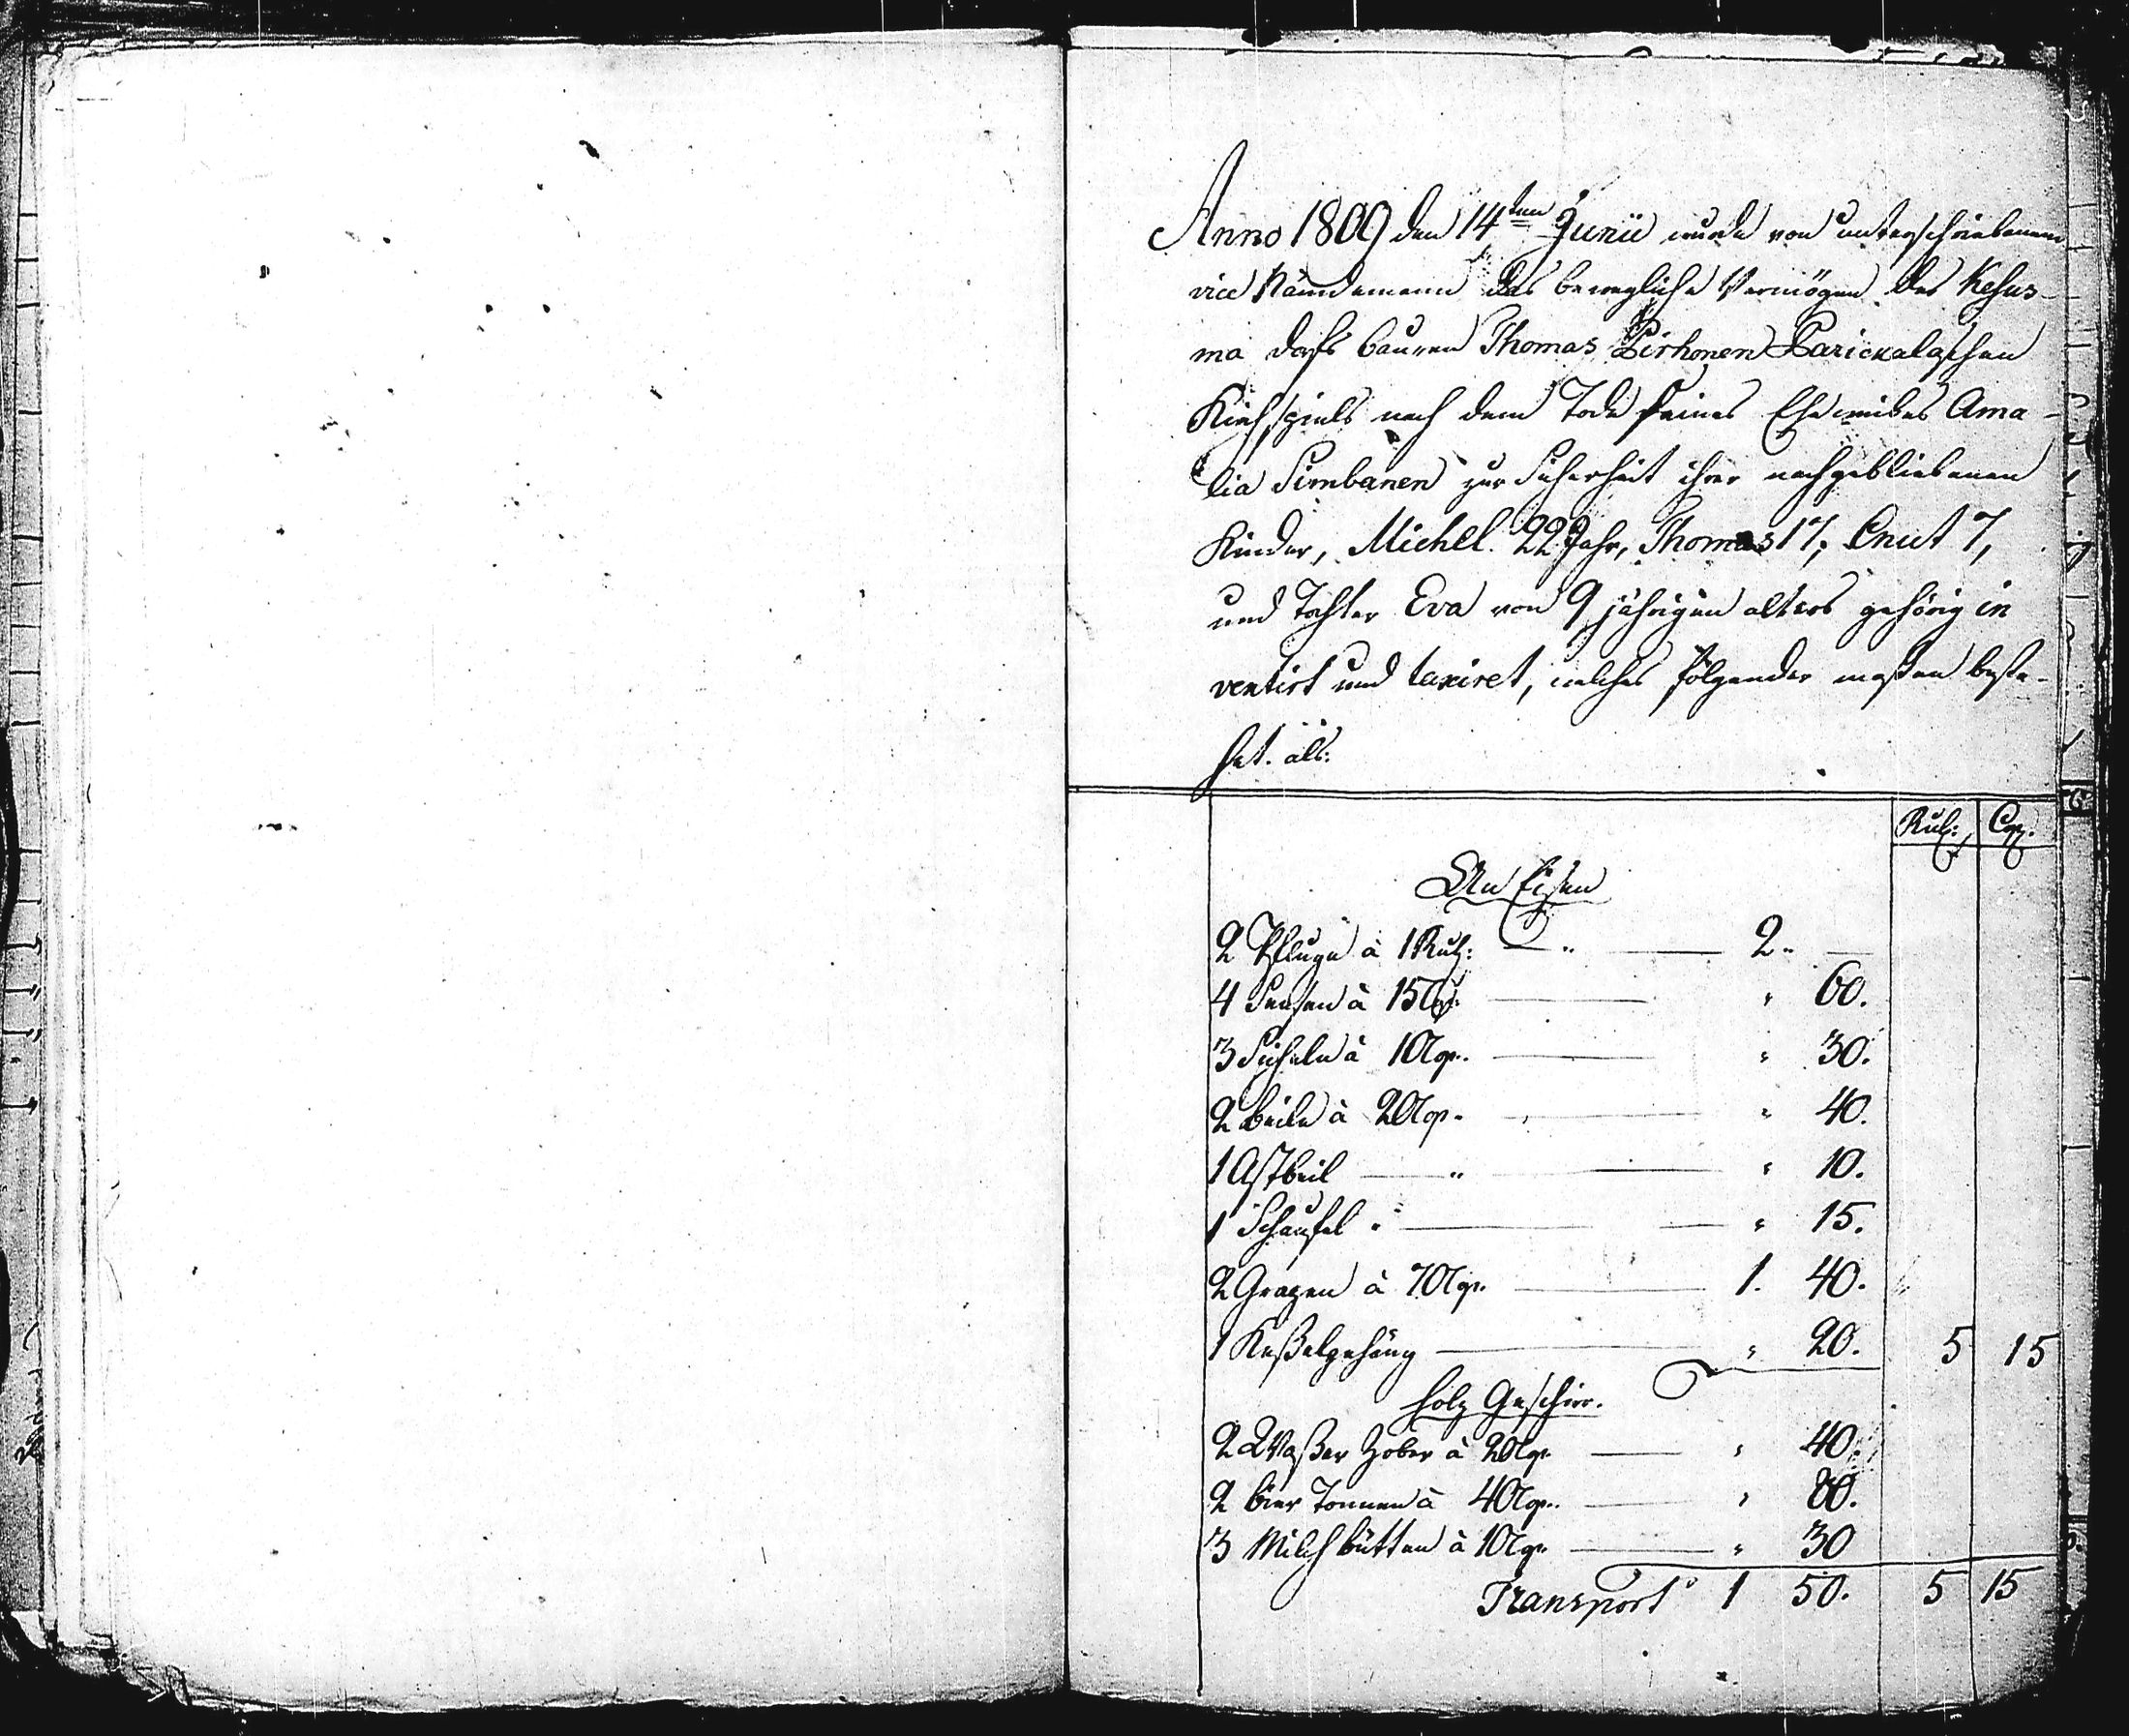 Anno 1809 den 14ten Junii wurde von unterschriebenem
vice Nämndemann das bewegliche Vermögen des Kesus-
ma dorfs bauren Thomas Pirhonen Parickalaschen
Kirchspiels nach dem Tode seines Eheweibes Ama-
lia Simbanen zur Sicherheit ihrer nachgebliebenen
Kinder, Michel. 22 Jahr, Thomas 17, Cnut 7,
und Tochter Eva von 9 jährigen alters gehörig in
ventirt und taxiret, welches folgender maßen beste-
het. als:
Rub: Cop.
An Eisen
2 Pfluge à 1 Rub: — " — 2 " —
4 Sensen à 15 Cop: — " 60.
3 Sicheln à 10 Cop. — " 30.
2 beile à 20 Cop. — " 40.
1 Astbeil — " — " 10.
1 Schaufel " — " 15.
2 Grapen à 70 Cop. — 1. 40.
1 Keßelgehäng — " 20. 5 15
Holz Geschirr.
2 Waßer Zober à 20 Cop. — " 40.
2 bier Tonnen à 40 Cop. — " 80.
3 Milch bütten à 10 Cop. — " 30
Transport 1 50. 5 15